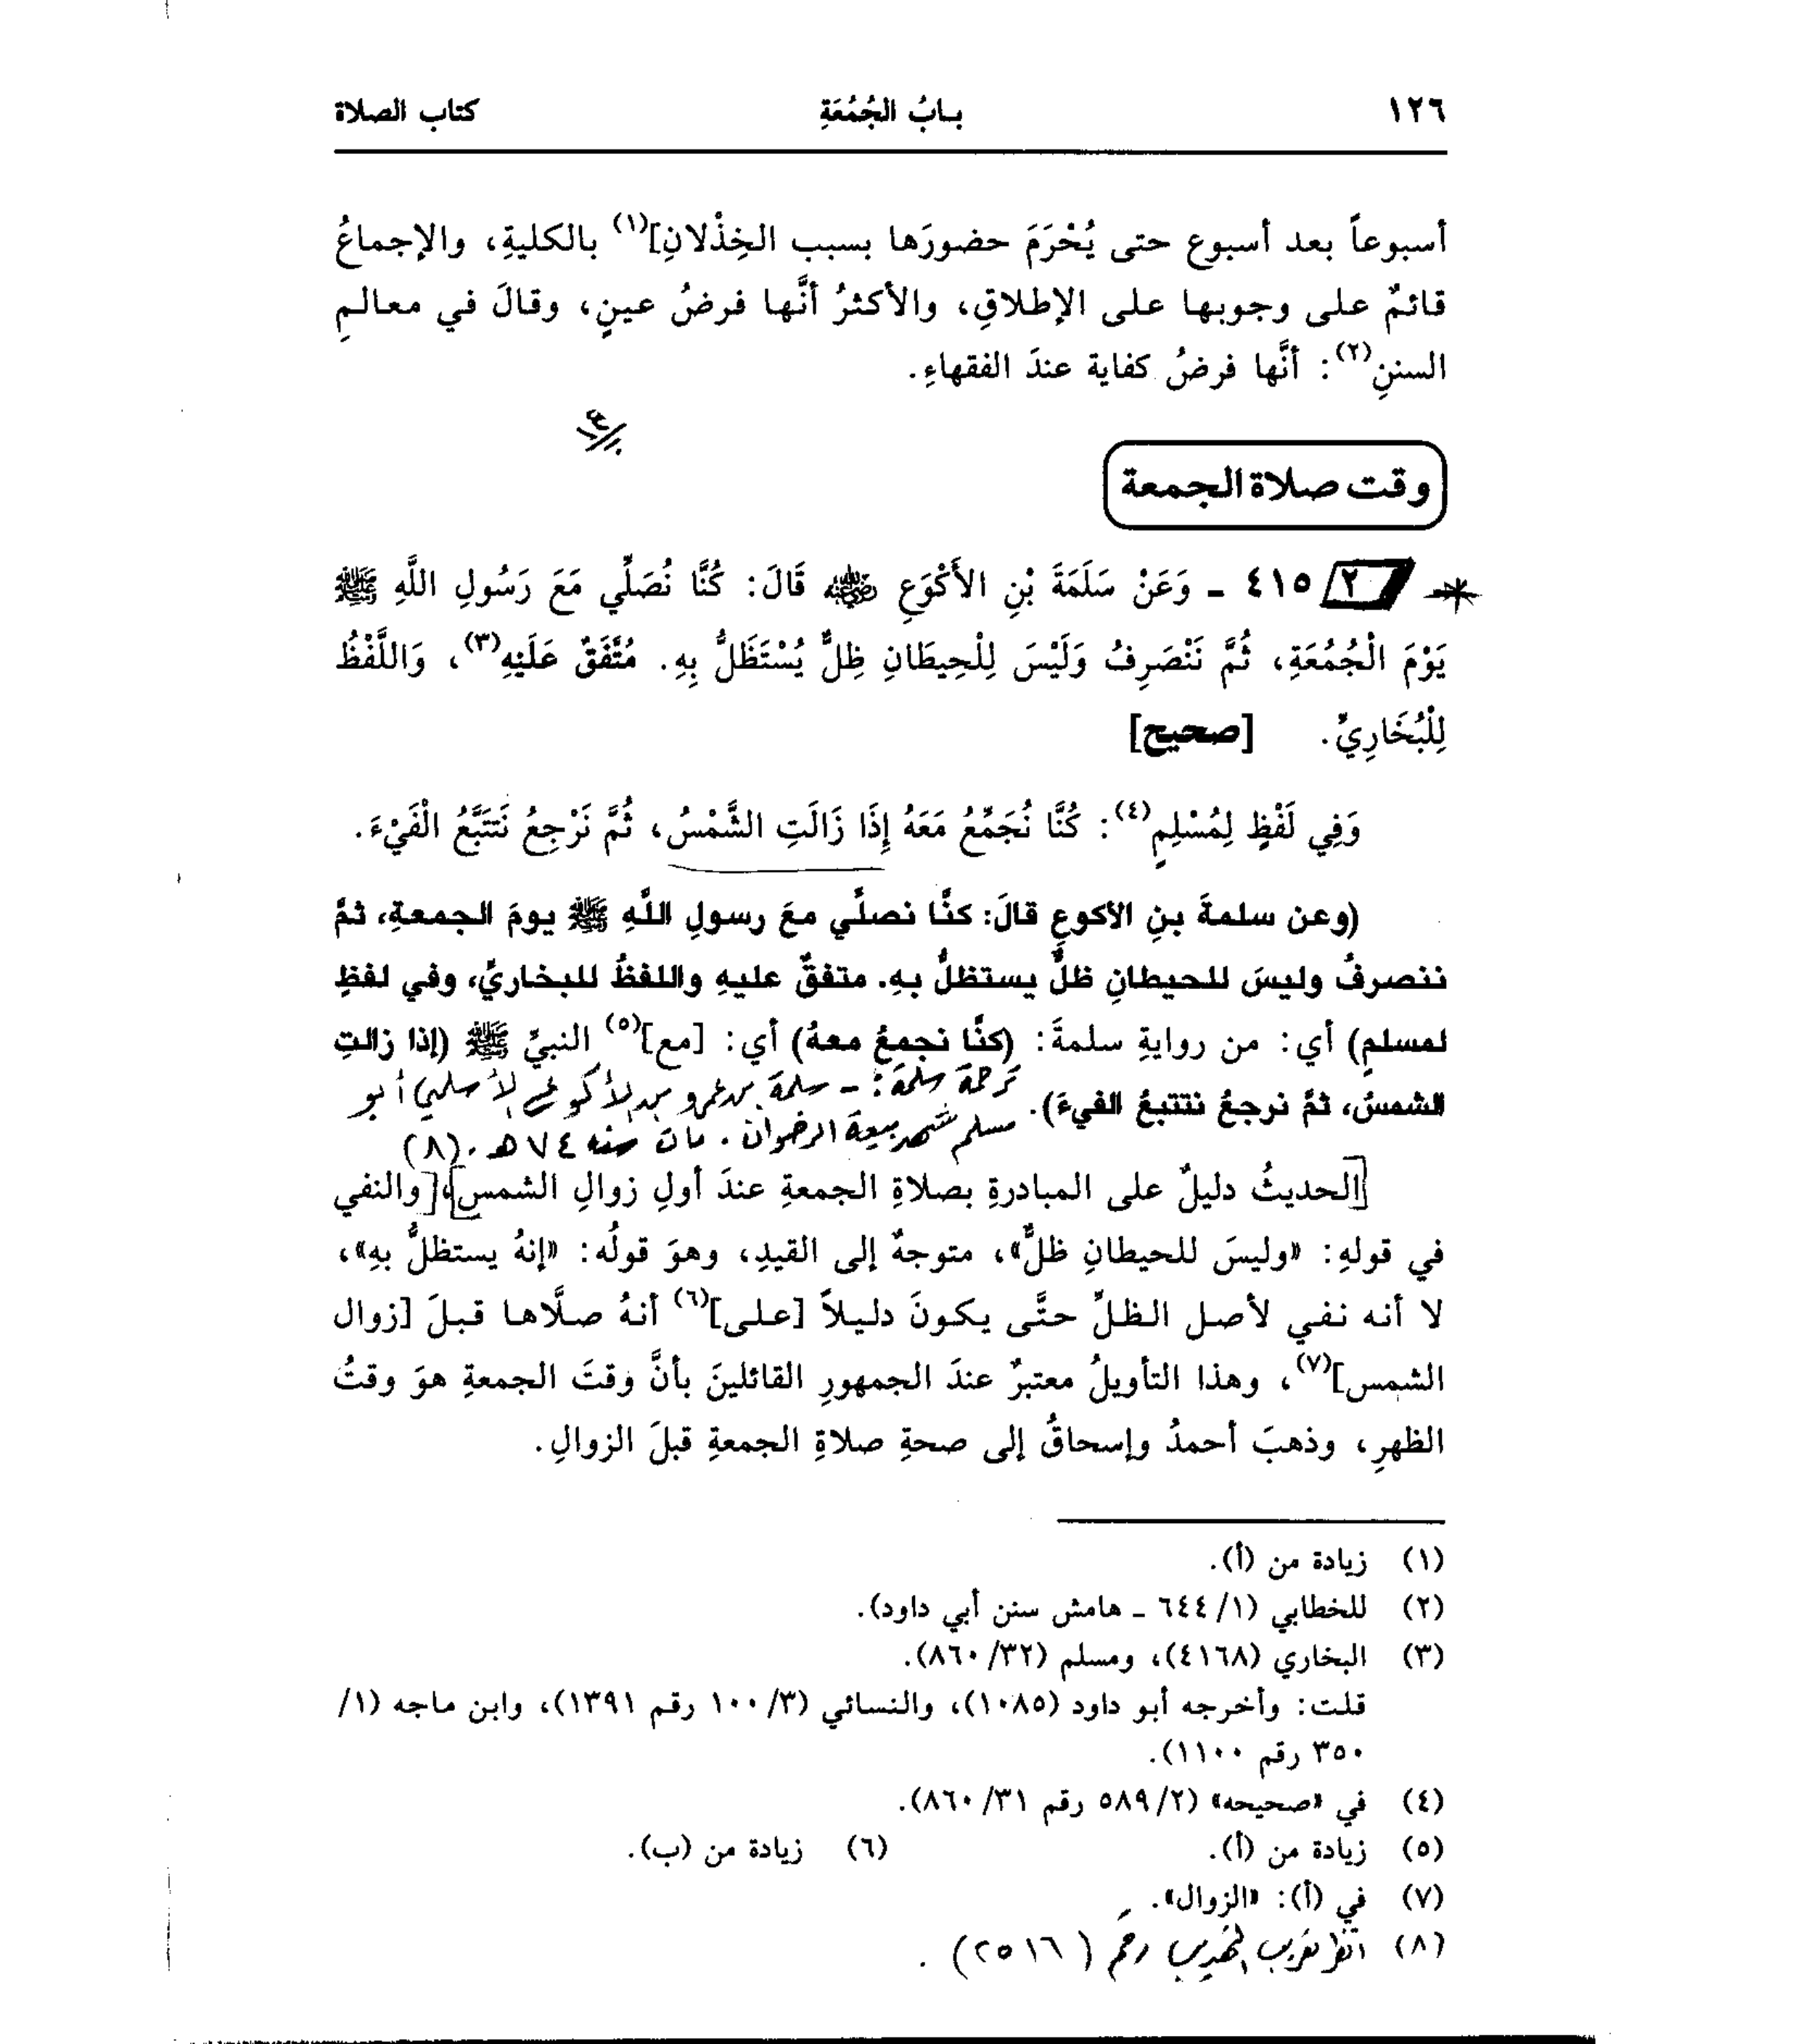 ١٢٦ بـابُ الجُمُعَةِ كتاب الصلاة
أسبوعاً بعد أسبوع حتى يُحْرَمَ حضورَها بسبب الخِذْلانِ](١) بالكليةِ، والإجماعُ
قائمٌ على وجوبها على الإطلاقِ، والأكثرُ أنَّها فرضُ عينٍ، وقالَ في معالمِ
السننِ(٢): أنَّها فرضُ كفاية عندَ الفقهاءِ.
وقت صلاة الجمعة
٢ ٤١٥ ـ وَعَنْ سَلَمَةَ بْنِ الأَكْوَعِ رضي الله عنه قَالَ: كُنَّا نُصَلِّي مَعَ رَسُولِ اللَّهِ ﷺ
يَوْمَ الْجُمُعَةِ، ثُمَّ نَنْصَرِفُ وَلَيْسَ لِلْحِيطَانِ ظِلٌّ يُسْتَظَلُّ بِهِ. مُتَّفَقٌ عَلَيْهِ(٣)، وَاللَّفْظُ
لِلْبُخَارِيِّ. [صحيح]
وَفِي لَفْظٍ لِمُسْلِمٍ(٤): كُنَّا نُجَمِّعُ مَعَهُ إِذَا زَالَتِ الشَّمْسُ، ثُمَّ نَرْجِعُ نَتَتَبَّعُ الْفَيْءَ.
(وعن سلمةَ بنِ الأكوعِ قالَ: كنَّا نصلِّي معَ رسولِ اللَّهِ ﷺ يومَ الجمعةِ، ثمَّ
ننصرفُ وليسَ للحيطانِ ظلٌّ يستظلُّ بهِ. متفقٌ عليهِ واللفظُ للبخاريِّ، وفي لفظٍ
لمسلمٍ) أي: من روايةِ سلمةَ: (كنَّا نجمعُ معهُ) أي: [مع](٥) النبيِّ ﷺ (إذا زالتِ
الشمسُ، ثمَّ نرجعُ نتتبعُ الفيءَ).
ترجمة سلمة: - سلمة بن عمرو بن الأكوع الأسلمي أبو
مسلم شهد بيعة الرضوان. مات سنه ٧٤ هـ. (٨)
[الحديثُ دليلٌ على المبادرةِ بصلاةِ الجمعةِ عندَ أولِ زوالِ الشمسِ]، [والنفي
في قولهِ: «وليسَ للحيطانِ ظلٌّ»، متوجهٌ إلى القيدِ، وهوَ قولُه: «إنهُ يستظلُّ بهِ»،
لا أنه نفي لأصل الظلِّ حتَّى يكونَ دليلاً [على](٦) أنهُ صلَّاها قبلَ [زوال
الشمس](٧)، وهذا التأويلُ معتبرٌ عندَ الجمهورِ القائلينَ بأنَّ وقتَ الجمعةِ هوَ وقتُ
الظهرِ، وذهبَ أحمدُ وإسحاقُ إلى صحةِ صلاةِ الجمعةِ قبلَ الزوالِ.
(١) زيادة من (أ).
(٢) للخطابي (١/ ٦٤٤ ـ هامش سنن أبي داود).
(٣) البخاري (٤١٦٨)، ومسلم (٣٢/ ٨٦٠).
قلت: وأخرجه أبو داود (١٠٨٥)، والنسائي (٣/ ١٠٠ رقم ١٣٩١)، وابن ماجه (١/
٣٥٠ رقم ١١٠٠).
(٤) في «صحيحه» (٢/ ٥٨٩ رقم ٣١/ ٨٦٠).
(٥) زيادة من (أ). (٦) زيادة من (ب).
(٧) في (أ): «الزوال».
(٨) انظر تقريب التهذيب رقم (٢٥١٦).